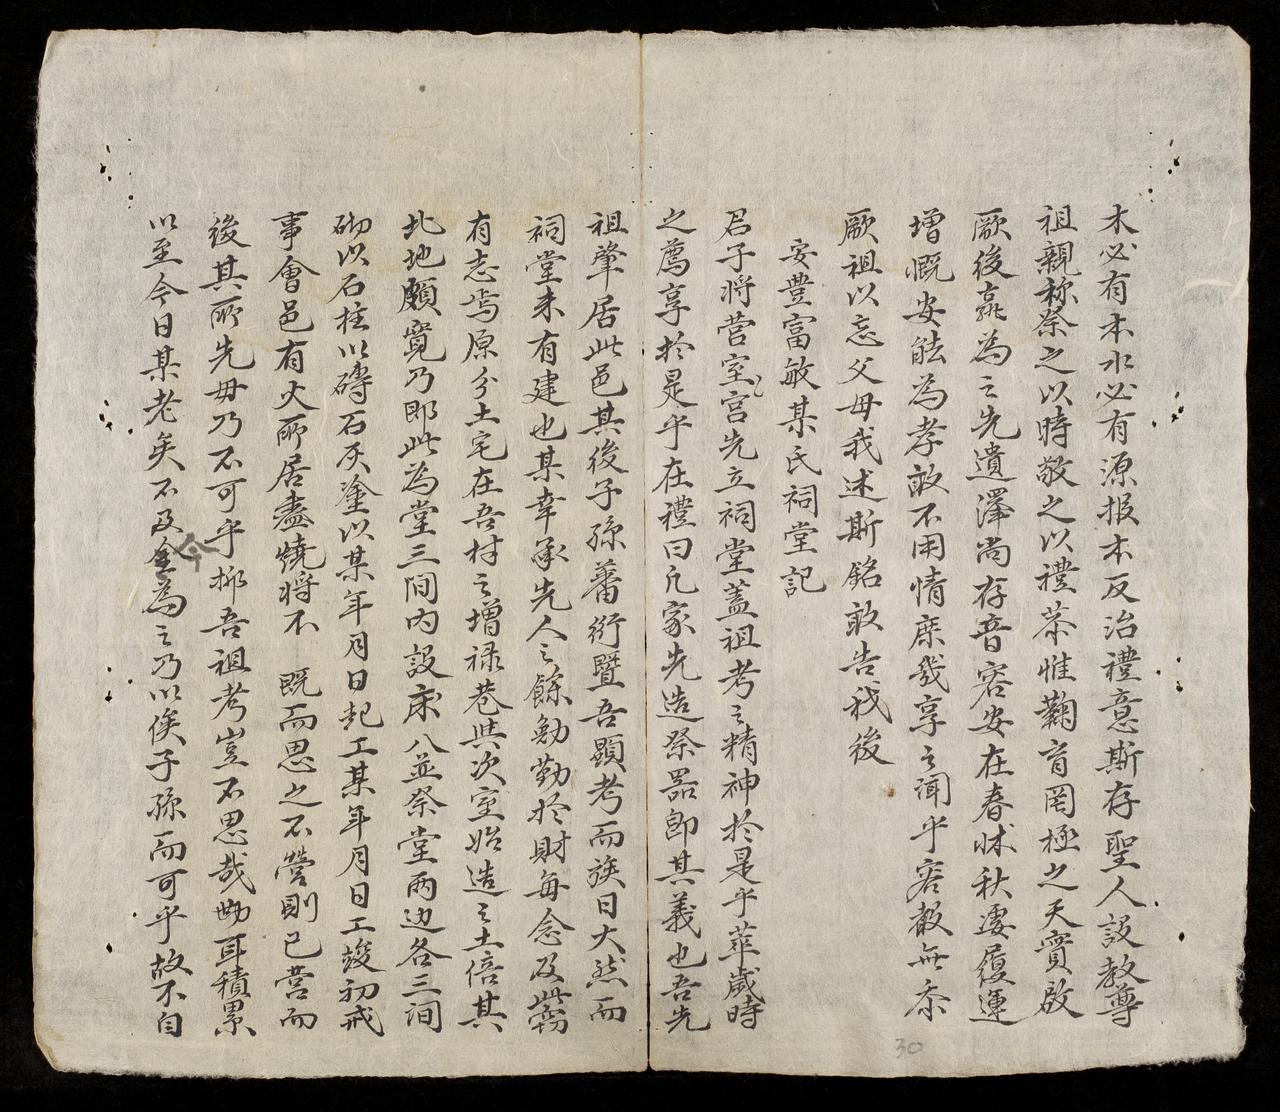 木必有本水必有源报本反治禮意斯存聖人設教尊
祖親称祭之以時敬之以禮恭惟鞠育罔極之天實啟
厥後羸為之先遺澤尚存音容安在春怵秋凄履運
增慨安能為孝敢不用情庶幾享之洞乎容聲無忝
厥祖以忘父母我述斯銘敢告我後
安豊富敏某氏祠堂記
君子将营室宫先立祠堂蓋祖考之精神於是乎萃歲時
之薦享於是乎在禮曰凡家先造祭器即其義也吾先
祖肇居此邑其後子孫蕃衍暨吾顯考而族日大然而
祠堂未有建也某幸承先人之餘勉勤於財每念及此窃
有志焉原分土宅在吾村之增禄巷與次室始造之土倍其
北地頗寛乃即此為堂三间内設康八並祭堂两边各三间
砌以石柱以磚石灰塗以某年月日起工某年月日工竣初戒
事會邑有火所居盡燒将不 既而思之不營則已营而
後其所先毋乃不可乎抑吾祖考豈不思哉勘耳積累
以至今日某老矣不及今為之乃以俟子孫而可乎故不自
30